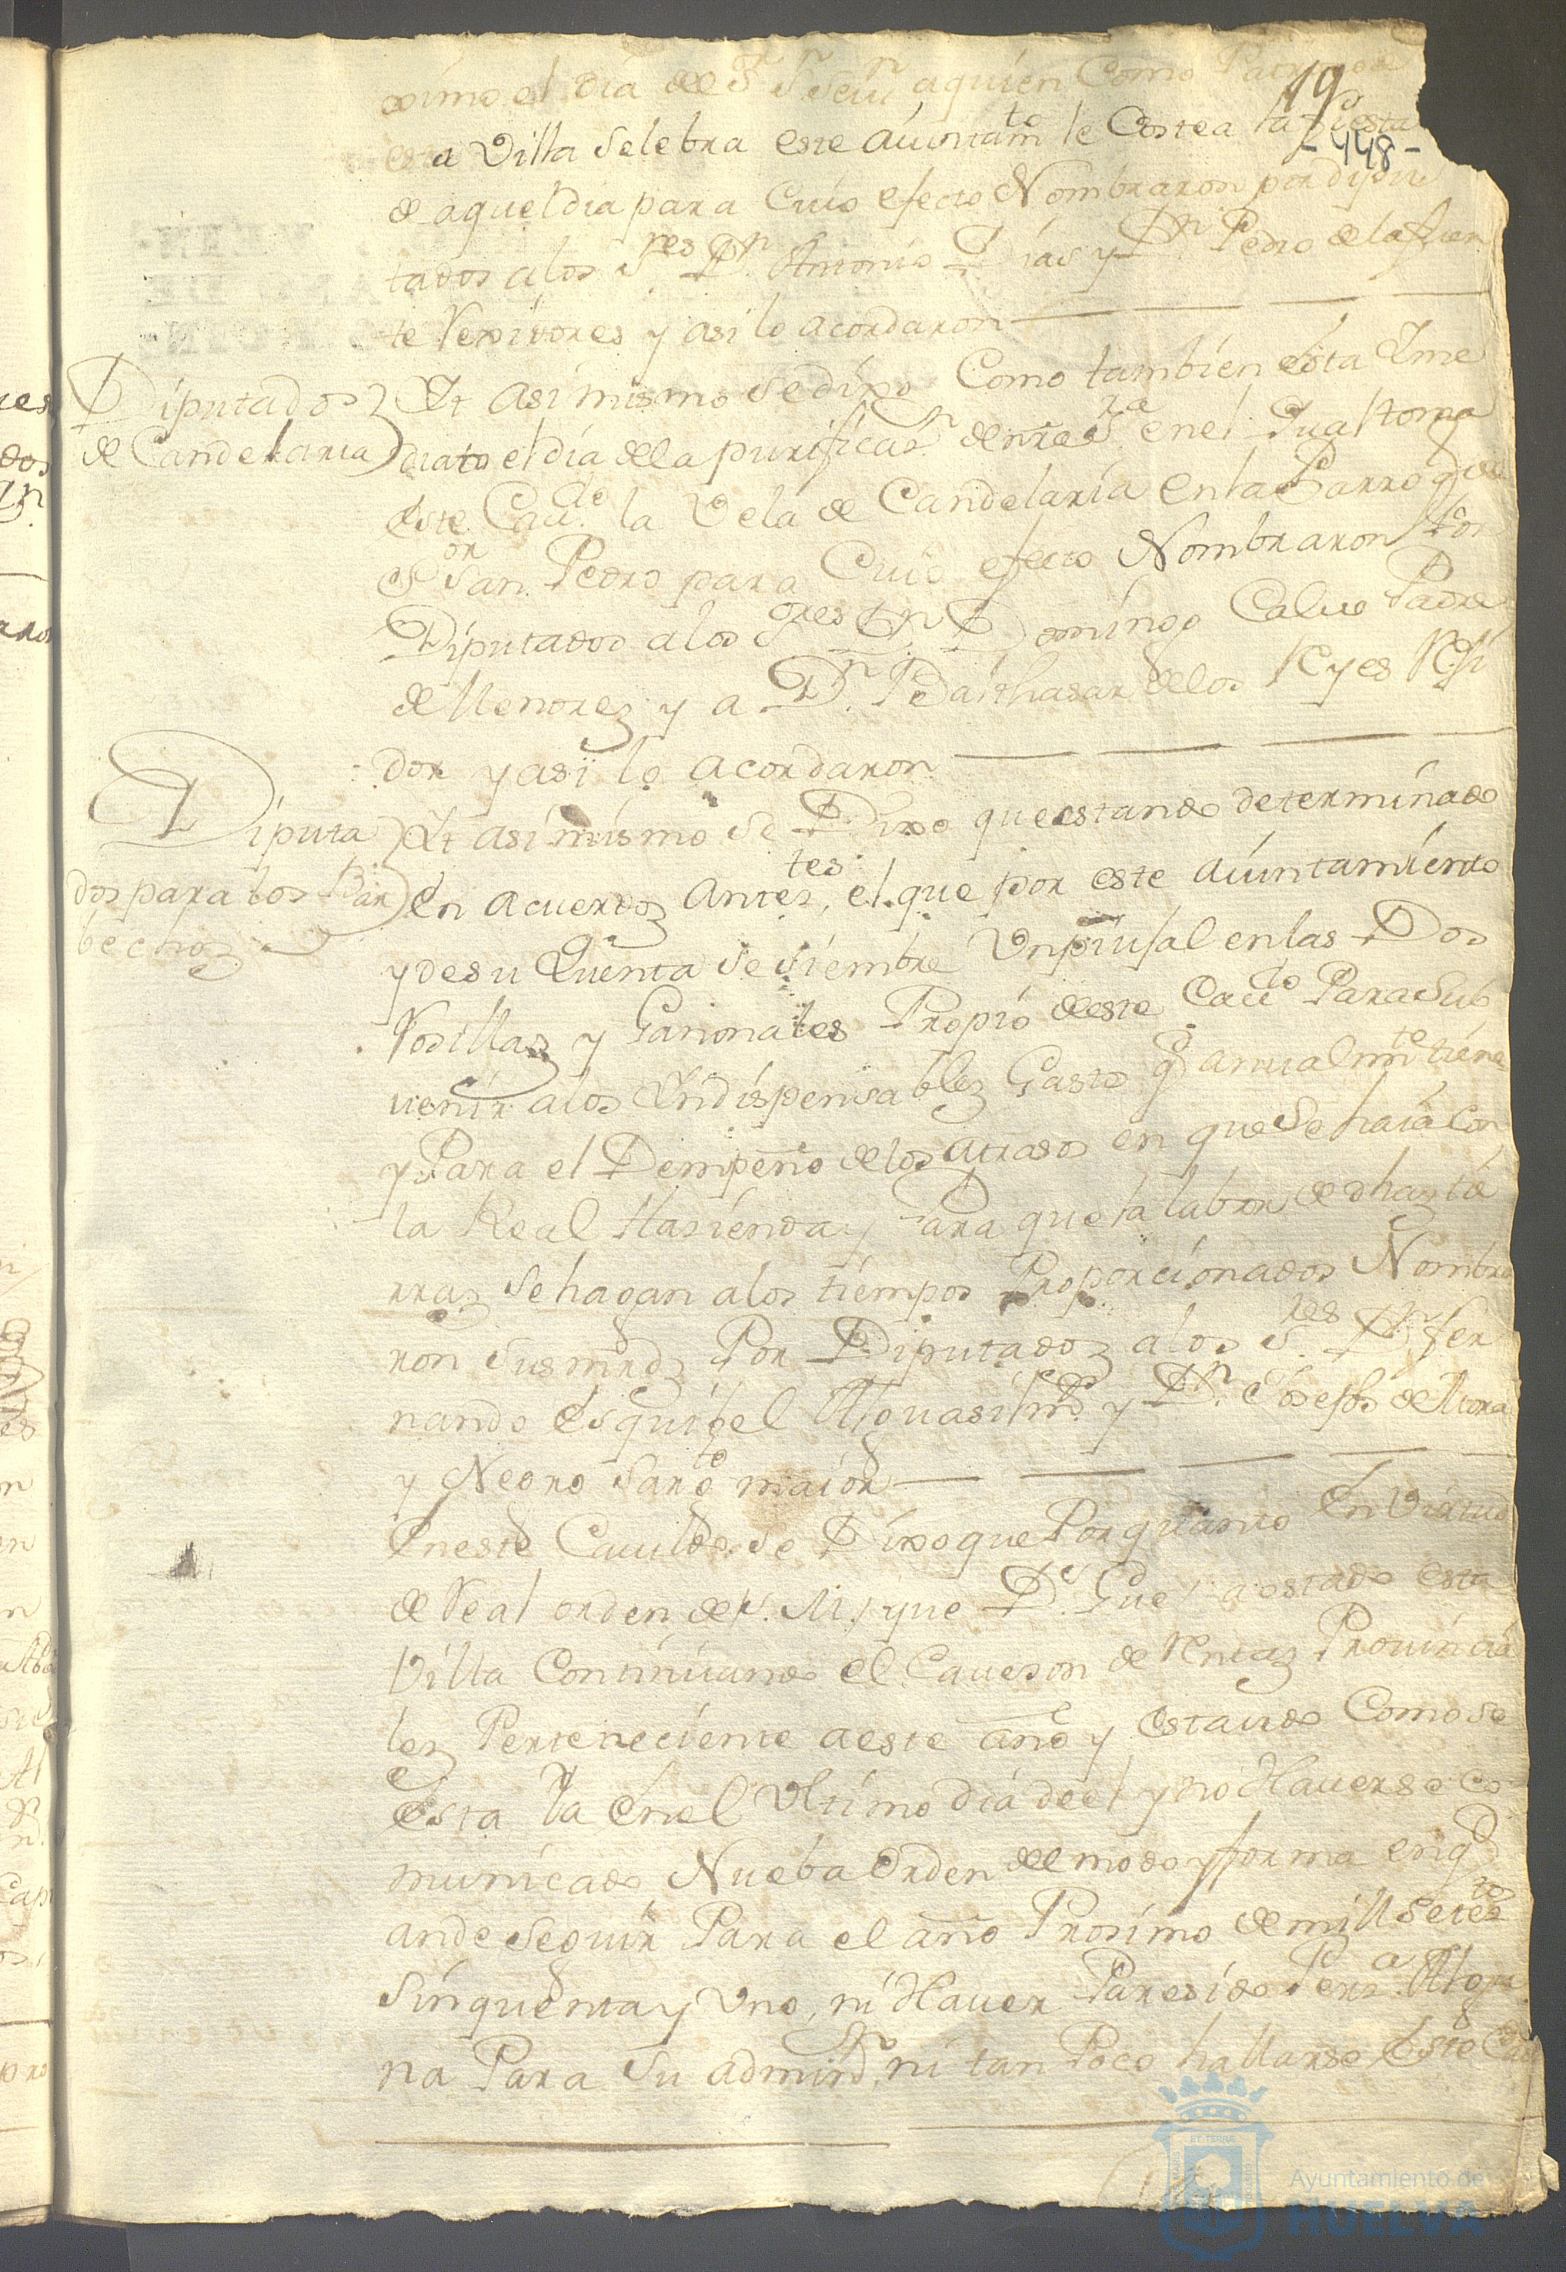 19
ximo el dia del Sr. Sn. Seun. a quien Como Patrono de
-448-
esta Villa Selebra este aiuntamto. le Costea la fiesta
de aquel dia para Cuio efecto Nombraron por dipu
tados a los Sres. Dn. Antonio Dias y Dn. Pedro de la fuen
te Rexidores y asi lo acordaron
Diputados
de Candelaria
Yt asi mismo se dixo Como tambien esta Yme
diato el dia de la purificasn. de nra. Sra. en el Qual toma
este Cavdo. la Vela de Candelaria en la Parroqa. de
Sor San Pedro para Cuio efecto Nombraron Por
Diputados a los Sores Dn. Domingo Calvo Padre
de Menores y a Dn. Balthasar de los Reyes Rexi
dor y asi lo acordaron
Diputa
dos para los Bar
bechos
Yt asi mismo se Dixo que estando determinado
en acuerdos antestes. el que por este aiuntamiento
y de su Quenta se siembre Un piujal en las Dos
Rosillas y Gañonales Propio de este Cavdo. Para Sub
uenir a los Yndispensables Gastos q. anualmte. tiene
y Para el Dempeño de los atrasos en que se haia Con
la Real Hasienda y Para que la labor de dhas tie
rras se hagan a los tiempos Proporcionados Nombra
ron sus mrds. Por Diputados a los Sres. Dn. fer
nando esquibel Alguasil mr. y Dn. Joseph de Mora
y Negro Sargto. maior
En este Cavildo se Dixo que Por quanto en Virtud
de Real orden de S. M. que Ds. Gue. a estado esta
Villa Continuando el Caveson de Rentas Provincia
les Perteneciente a este año y estando Como se
Esta Ya en el Ultimo dia de el y no Haverse co
municado Nueba Orden del modo y forma en q.
ande Seguir Para el año Prosimo de mill Setetos.
Sinquenta y Uno, ni Haver Paresido Persa. Algu
na Para Su adminon. ni tan Poco hallarse este Cav
Ayuntamiento de
HUELVA